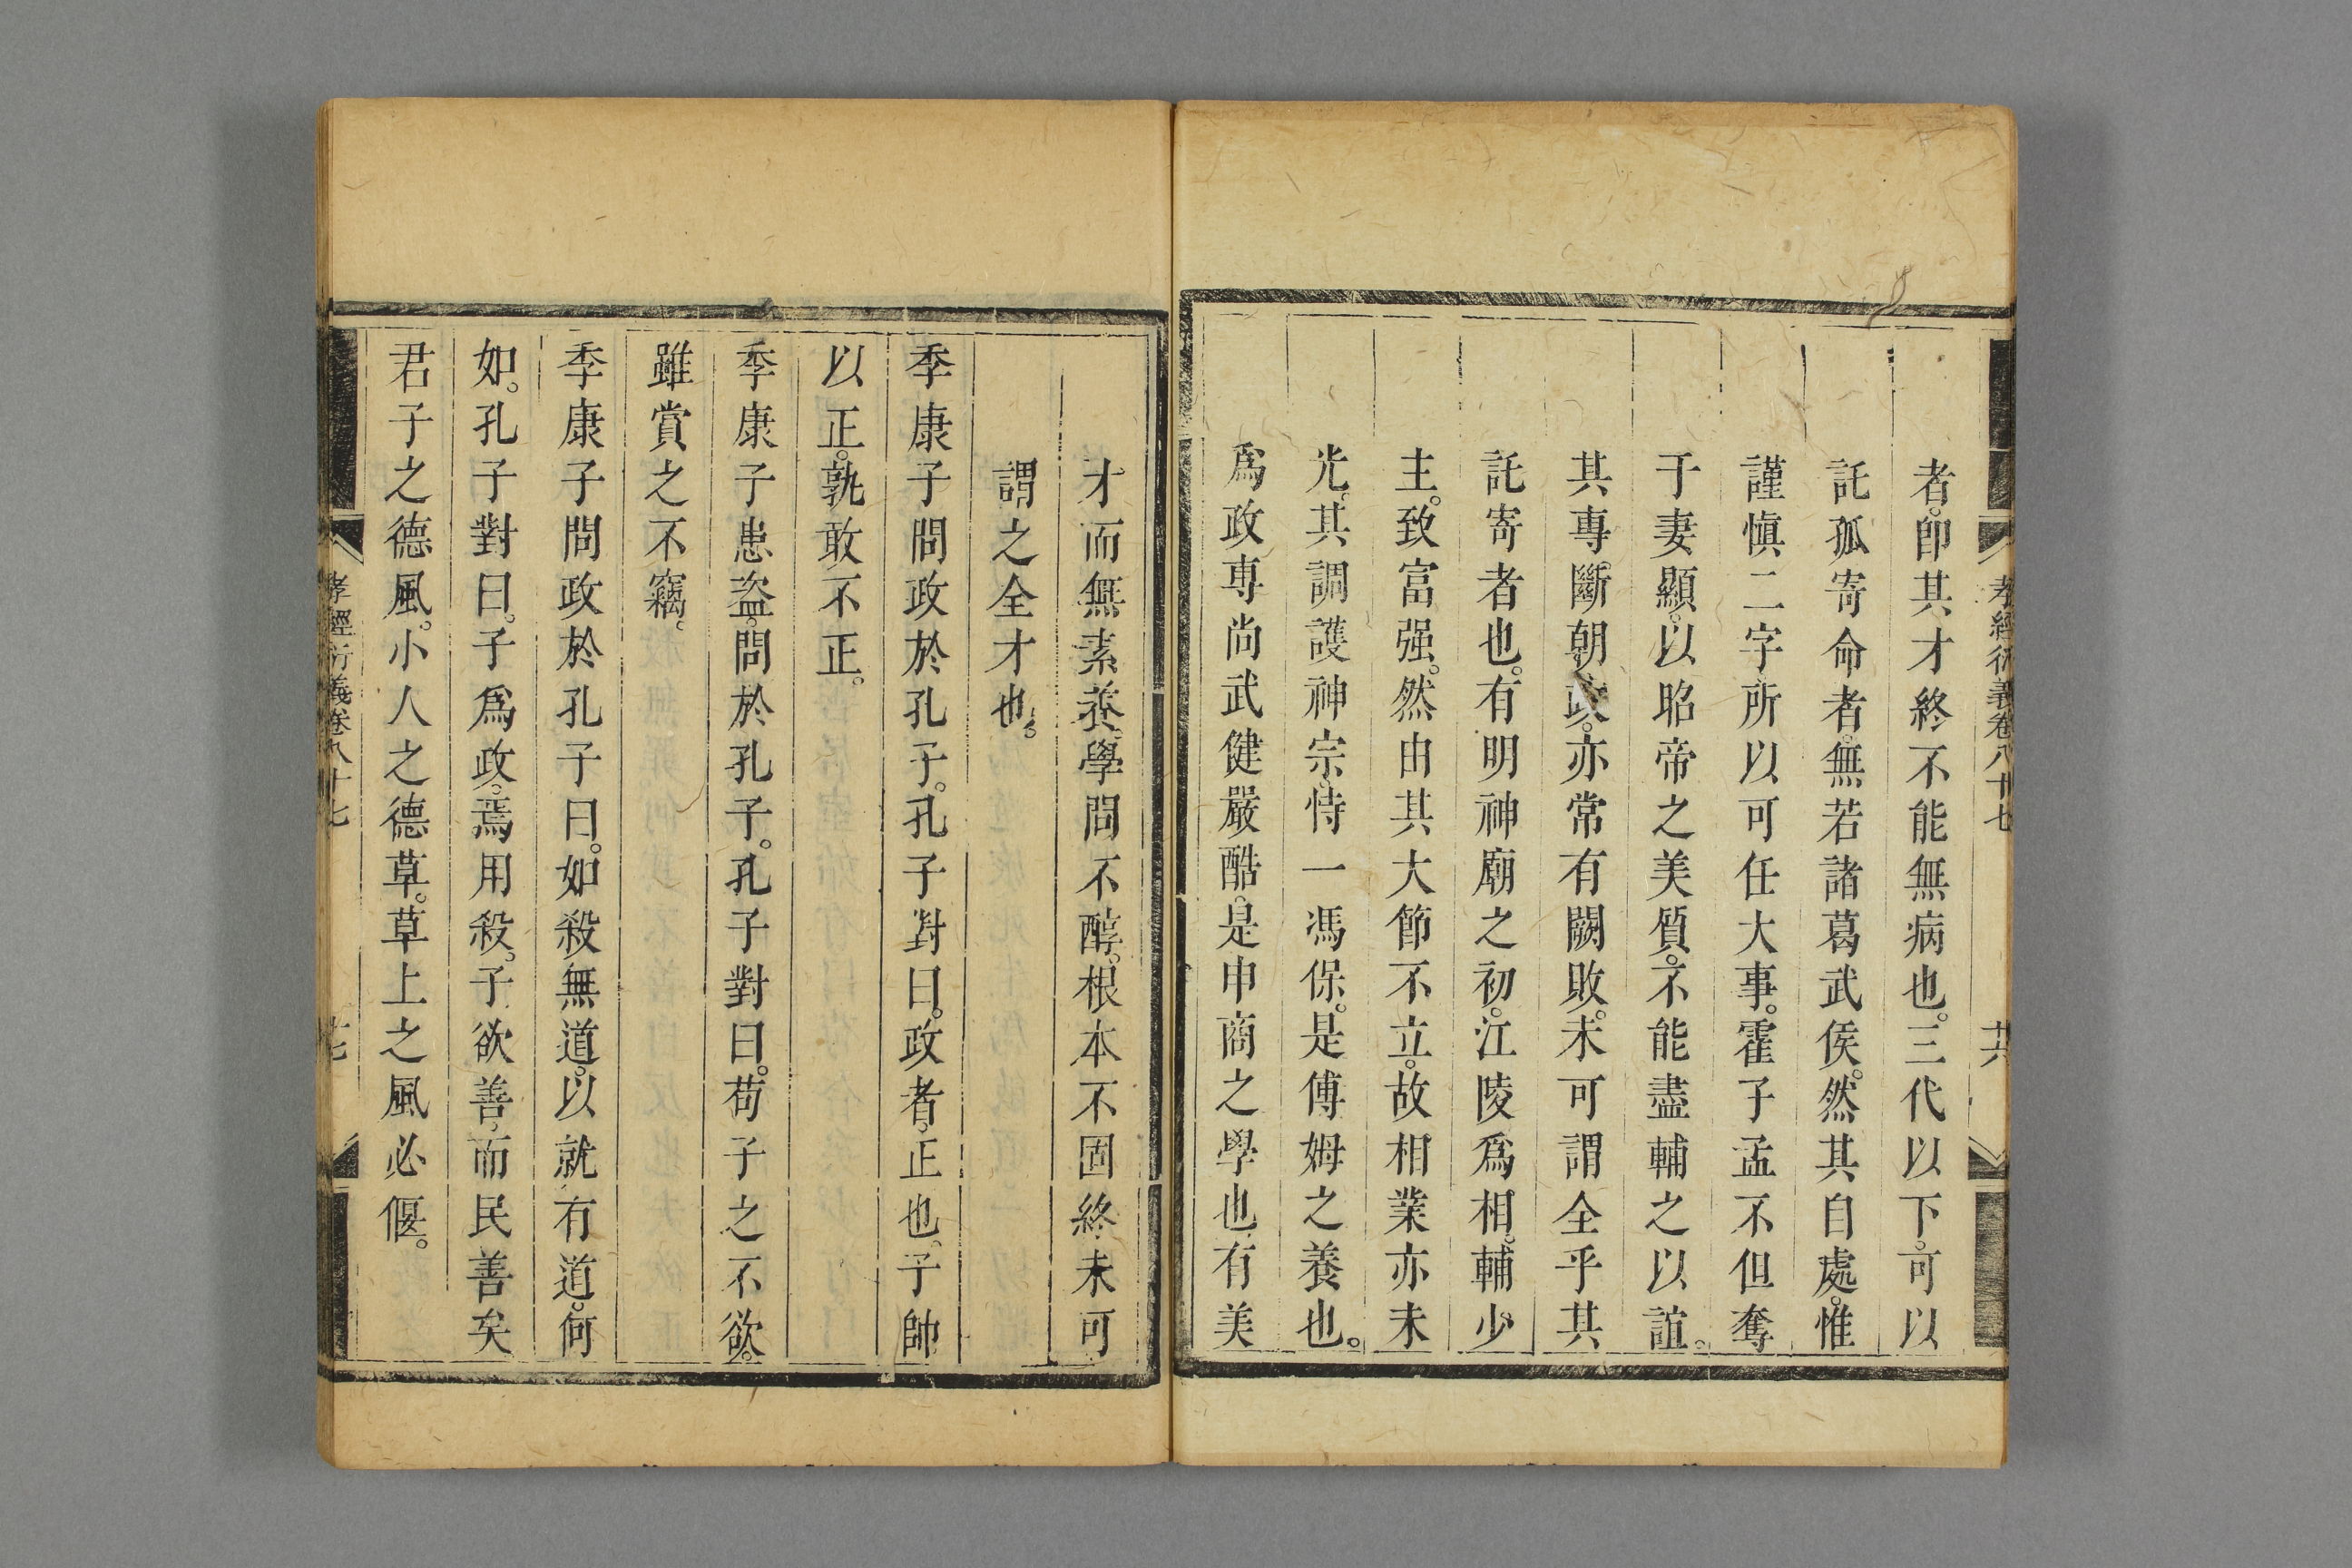 孝經衍義卷八十七 廿六
者。卽其才終不能無病也。三代以下。可以
託孤寄命者。無若諸葛武侯。然其自處。惟
謹愼二字。所以可任大事。霍子孟不但奪
于妻顯。以昭帝之美質。不能盡輔之以誼。
其專斷朝政。亦常有闕敗。未可謂全乎其
託寄者也。有明神廟之初。江陵爲相。輔少
主。致富强。然由其大節不立。故相業亦未
光。其調護神宗。恃一馮保。是傅姆之養也。
爲政專尚武健嚴酷。是申商之學也。有美
才而無素養。學問不醇。根本不固。終未可
謂之全才也。
季康子問政於孔子。孔子對曰。政者。正也。子帥
以正。孰敢不正。
季康子患盜。問於孔子。孔子對曰。苟子之不欲。
雖賞之不竊。
季康子問政於孔子曰。如殺無道。以就有道。何
如。孔子對曰。子爲政。焉用殺。子欲善。而民善矣
君子之德風。小人之德草。草上之風必偃。
孝經衍義卷八十七 廿七